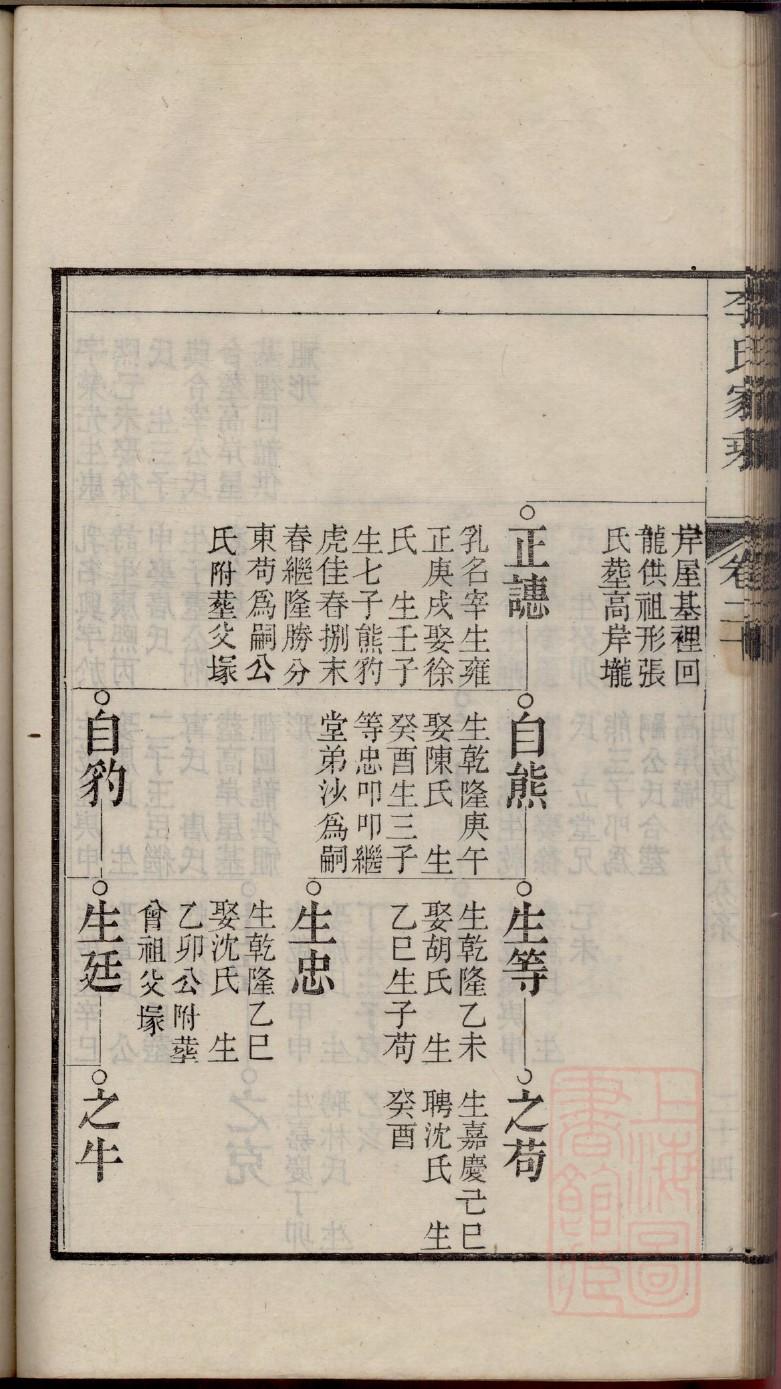 李氏家乘
卷二十
岸屋基裡回
龍供祖形張
氏塟高岸壠
正譓
乳名宰生雍
正庚戌娶徐
氏 生壬子
生七子熊豹
虎佳春捌末
春繼隆勝分
東苟爲嗣公
氏附塟父塜
自熊
生乾隆庚午
娶陳氏 生
癸酉生三子
等忠叩叩繼
堂弟沙爲嗣
自豹
生等
生乾隆乙未
娶胡氏 生
乙巳生子苟
生忠
生乾隆乙巳
娶沈氏 生
乙卯公附塟
曾祖父塜
生廷
之苟
生嘉慶己巳
聘沈氏 生
癸酉
之牛
上海圖
書館藏